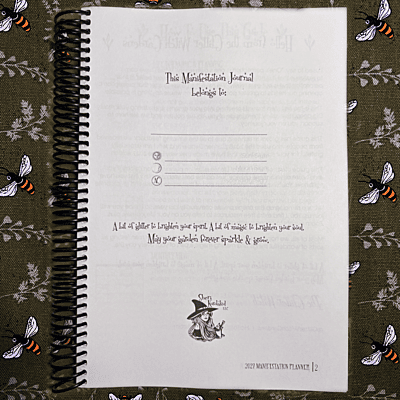 This Manifestation Journal
belongs to:
A bit of glitter to brighten your spirit. A bit of magic to brighten your soul.
May your garden forever sparkle & grow.
2023 MANIFESTATION PLANNER | 2